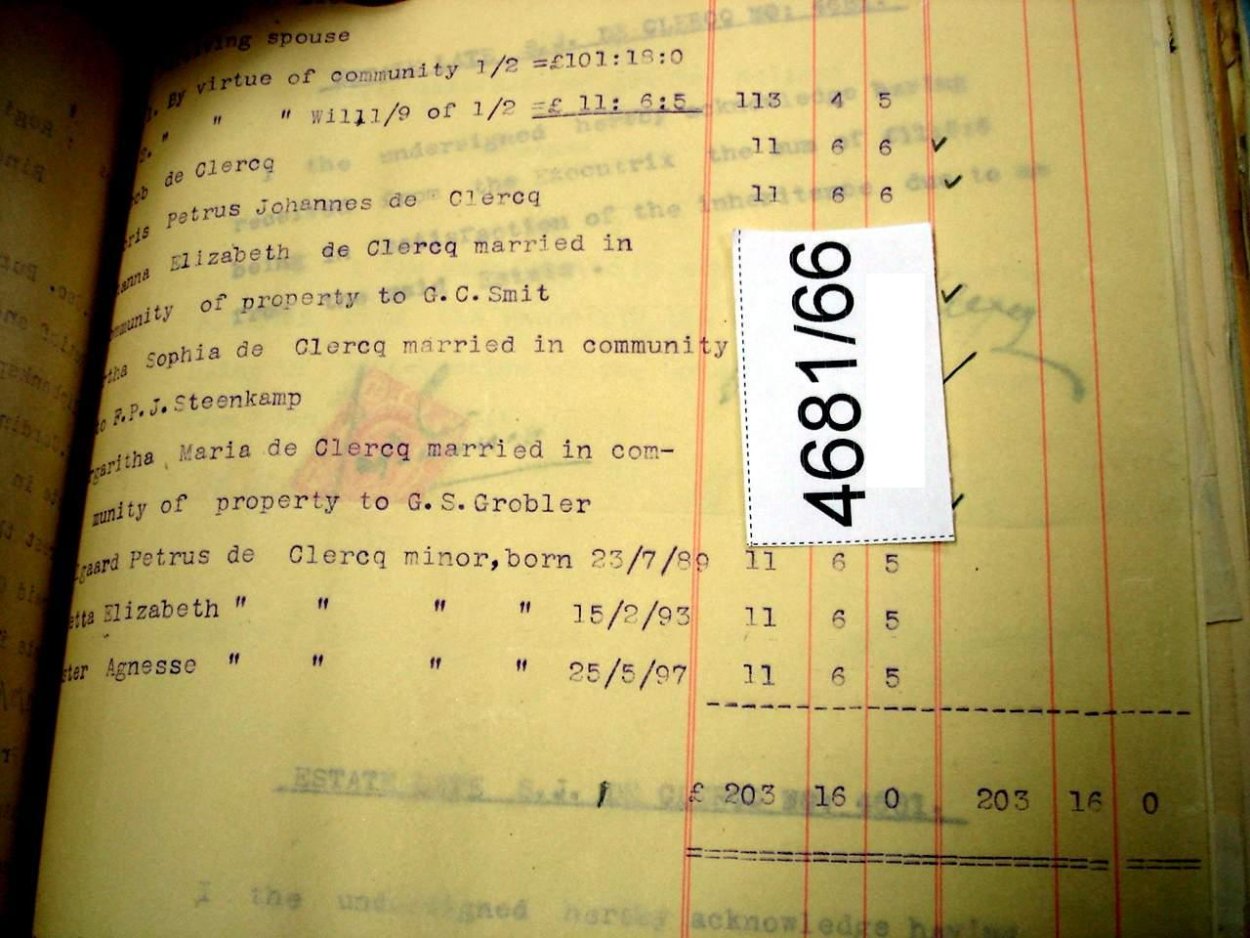 ving spouse
1. By virtue of community 1/2 =£101:18:0
2. " " " Will1/9 of 1/2 =£ 11: 6:5 113 4 5
ob de Clercq 11 6 6 ✓
ris Petrus Johannes de Clercq 11 6 6 ✓
anna Elizabeth de Clercq married in
mmunity of property to G.C.Smit ✓
tha Sophia de Clercq married in community
to F.P.J.Steenkamp
rgaritha Maria de Clercq married in com-
munity of property to G.S.Grobler
gaard Petrus de Clercq minor,born 23/7/89 11 6 5
etta Elizabeth " " " " 15/2/93 11 6 5
ster Agnesse " " " " 25/5/97 11 6 5
£ 203 16 0 203 16 0
4681/66
ESTATE LATE S.J. DE CLERCQ NO: 4681.
I the undersigned hereby acknowledge having